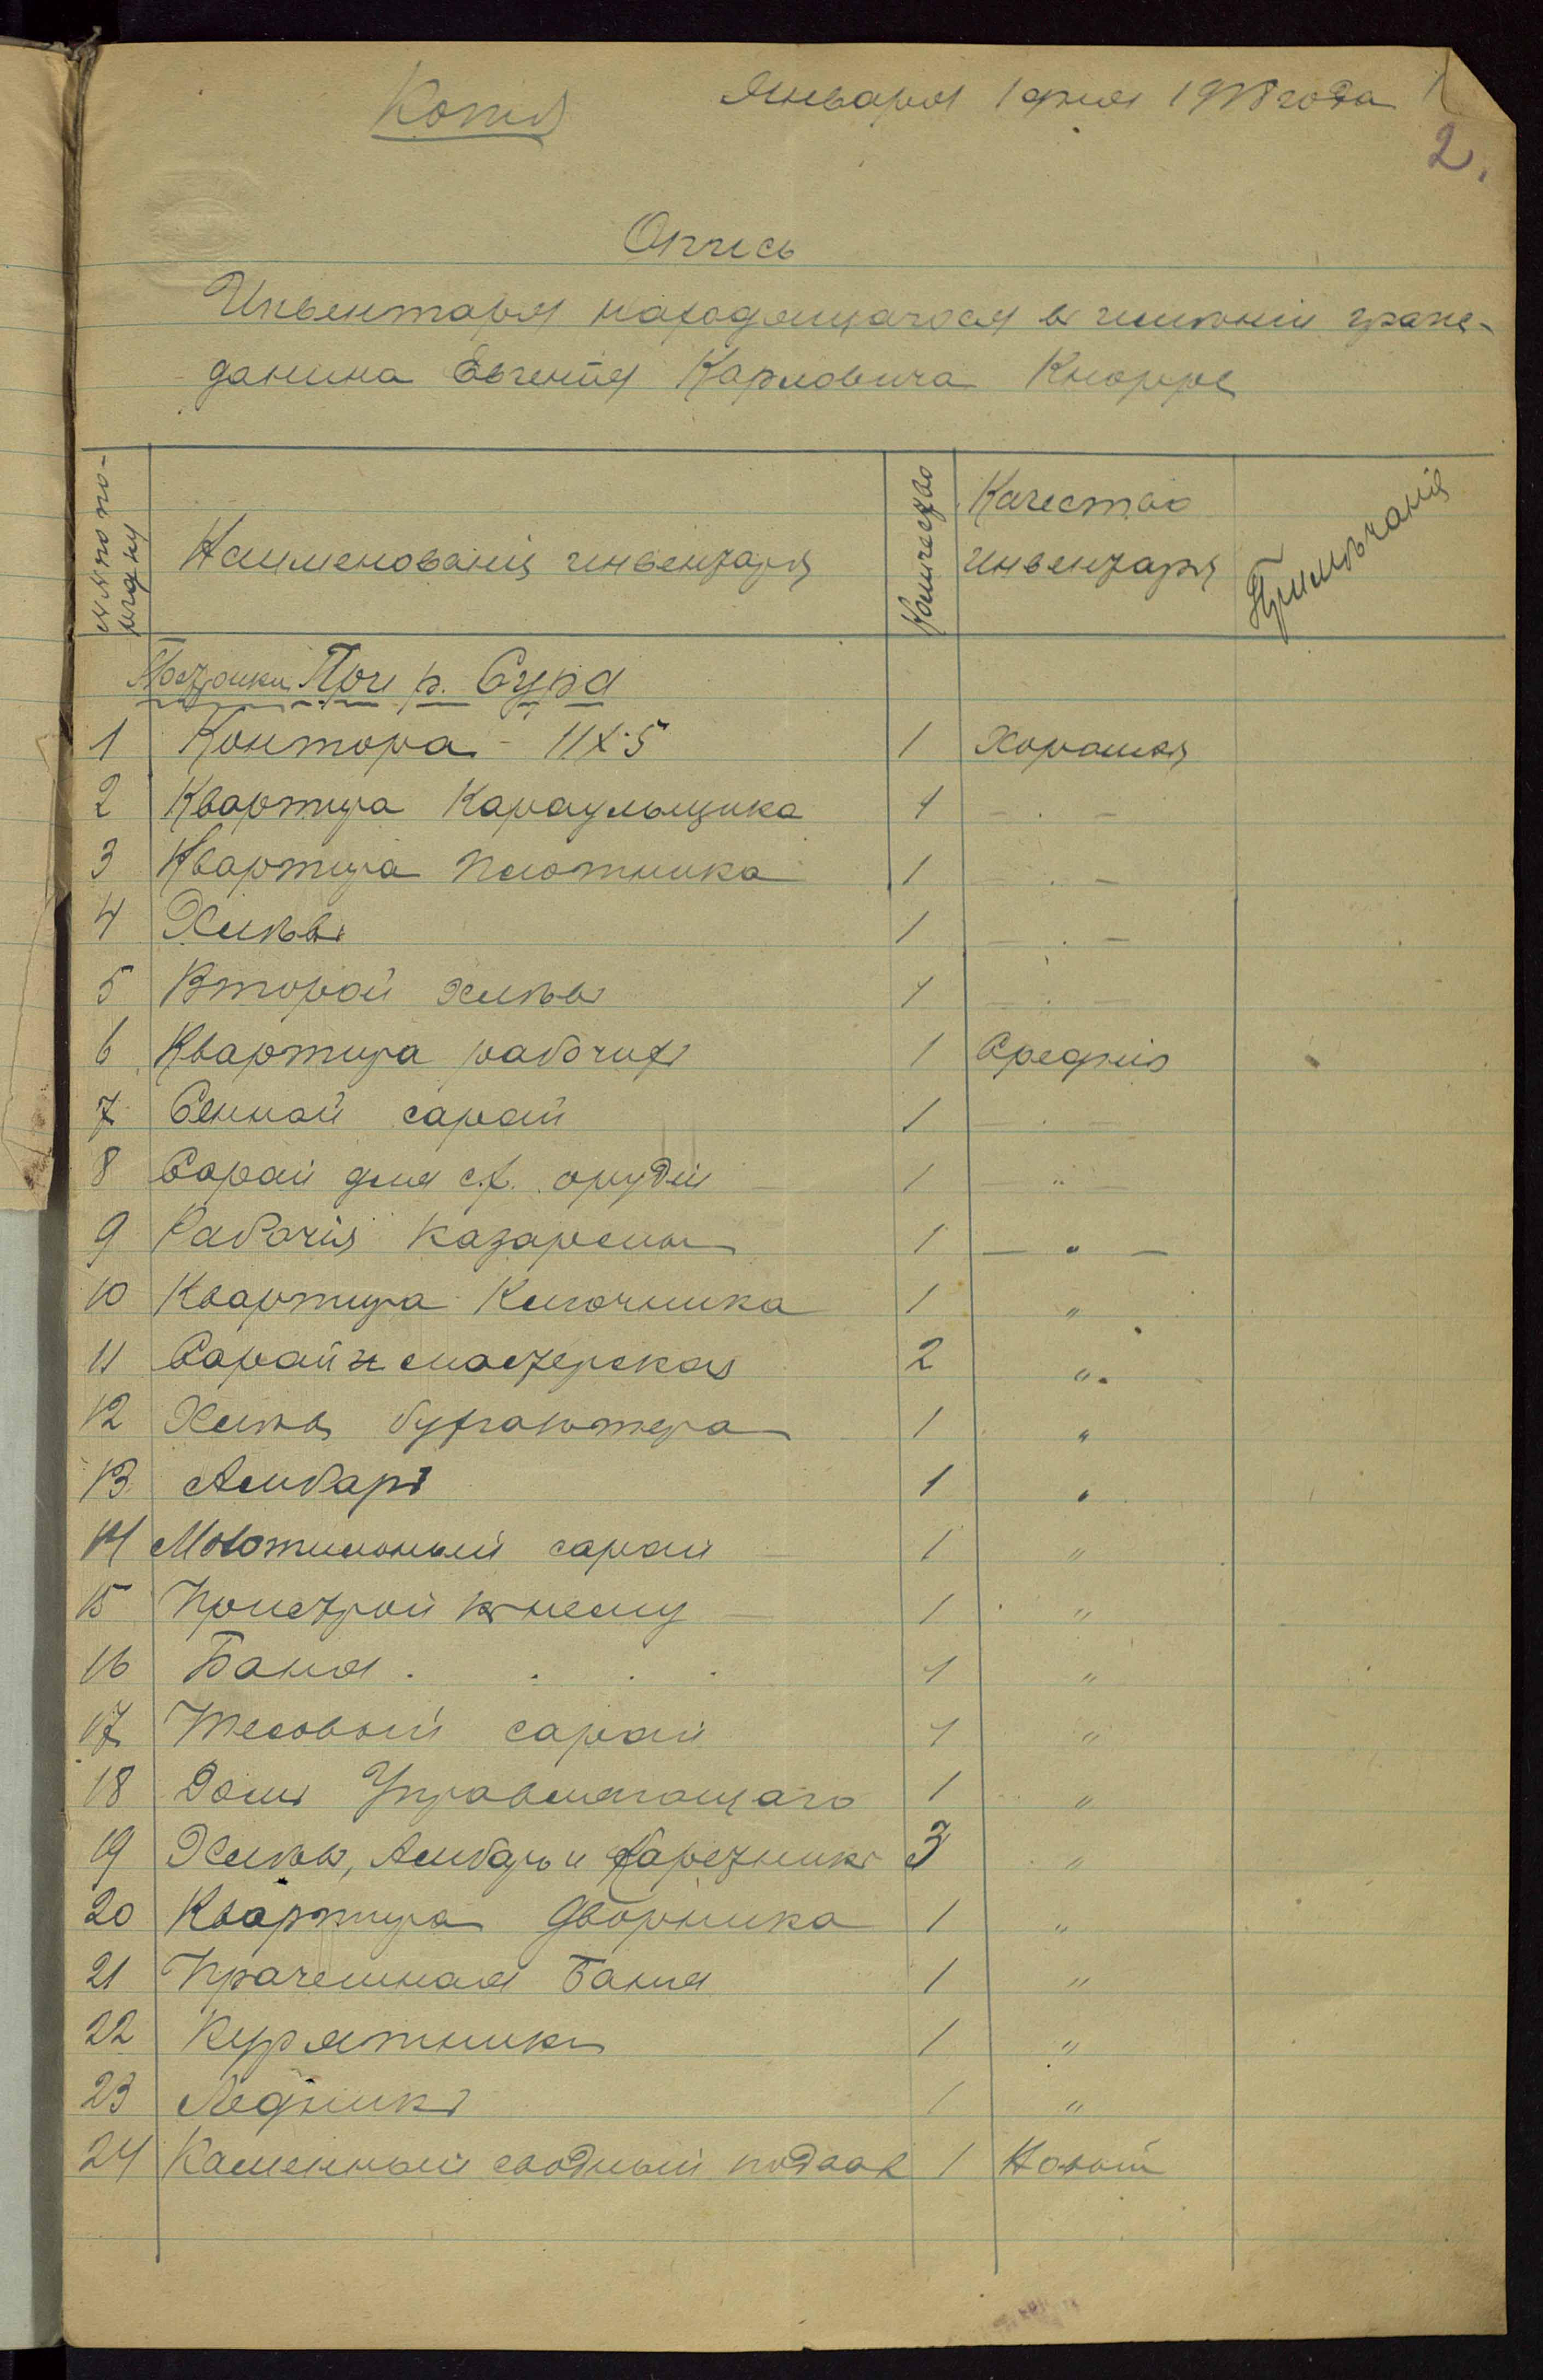 Копия
Января 1 дня 1918 года
2.
Опись
Инвентаря находящагося в имѣнии граж-
данина Евгения Карловича Кнорре
№№ по по-
рядку
Наименования инвентаря
Количество
Качество
инвентаря
Примѣчания
Постройки При р. Сура
1 Контора - 11х5 1 Хорошая
2 Квартира Караульщика 1 - . -
3 Квартира плотника 1 - . -
4 Хлѣвъ 1 - . -
5 Второй хлѣвъ 1 - . -
6 Квартира рабочихъ 1 Средния
7 Сенной сарай 1 - . -
8 Сарай для с.х. орудий 1 - " -
9 Рабочия казармы 1 - " -
10 Квартира Ключника 1 "
11 Сарай и мастерская 2 "
12 Хлѣвъ бухгалтера 1 "
13 Амбаръ 1 "
14 Молотильный сарай 1 "
15 Пристрой къ нему 1 "
16 Баня . . . . 1 "
17 Тесовый сарай 1 "
18 Домъ Управляющаго 1 "
19 Хлѣвъ, Амбаръ и Каретникъ 3 "
20 Квартира дворника 1 "
21 Прачешная Баня 1 "
22 Курятникъ 1 "
23 Ледникъ 1 "
24 Каменный сводный подвал 1 Новый